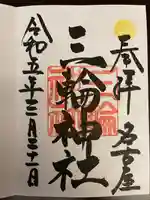 奉拝 名古屋
三輪神社
令和五年三月二十一日